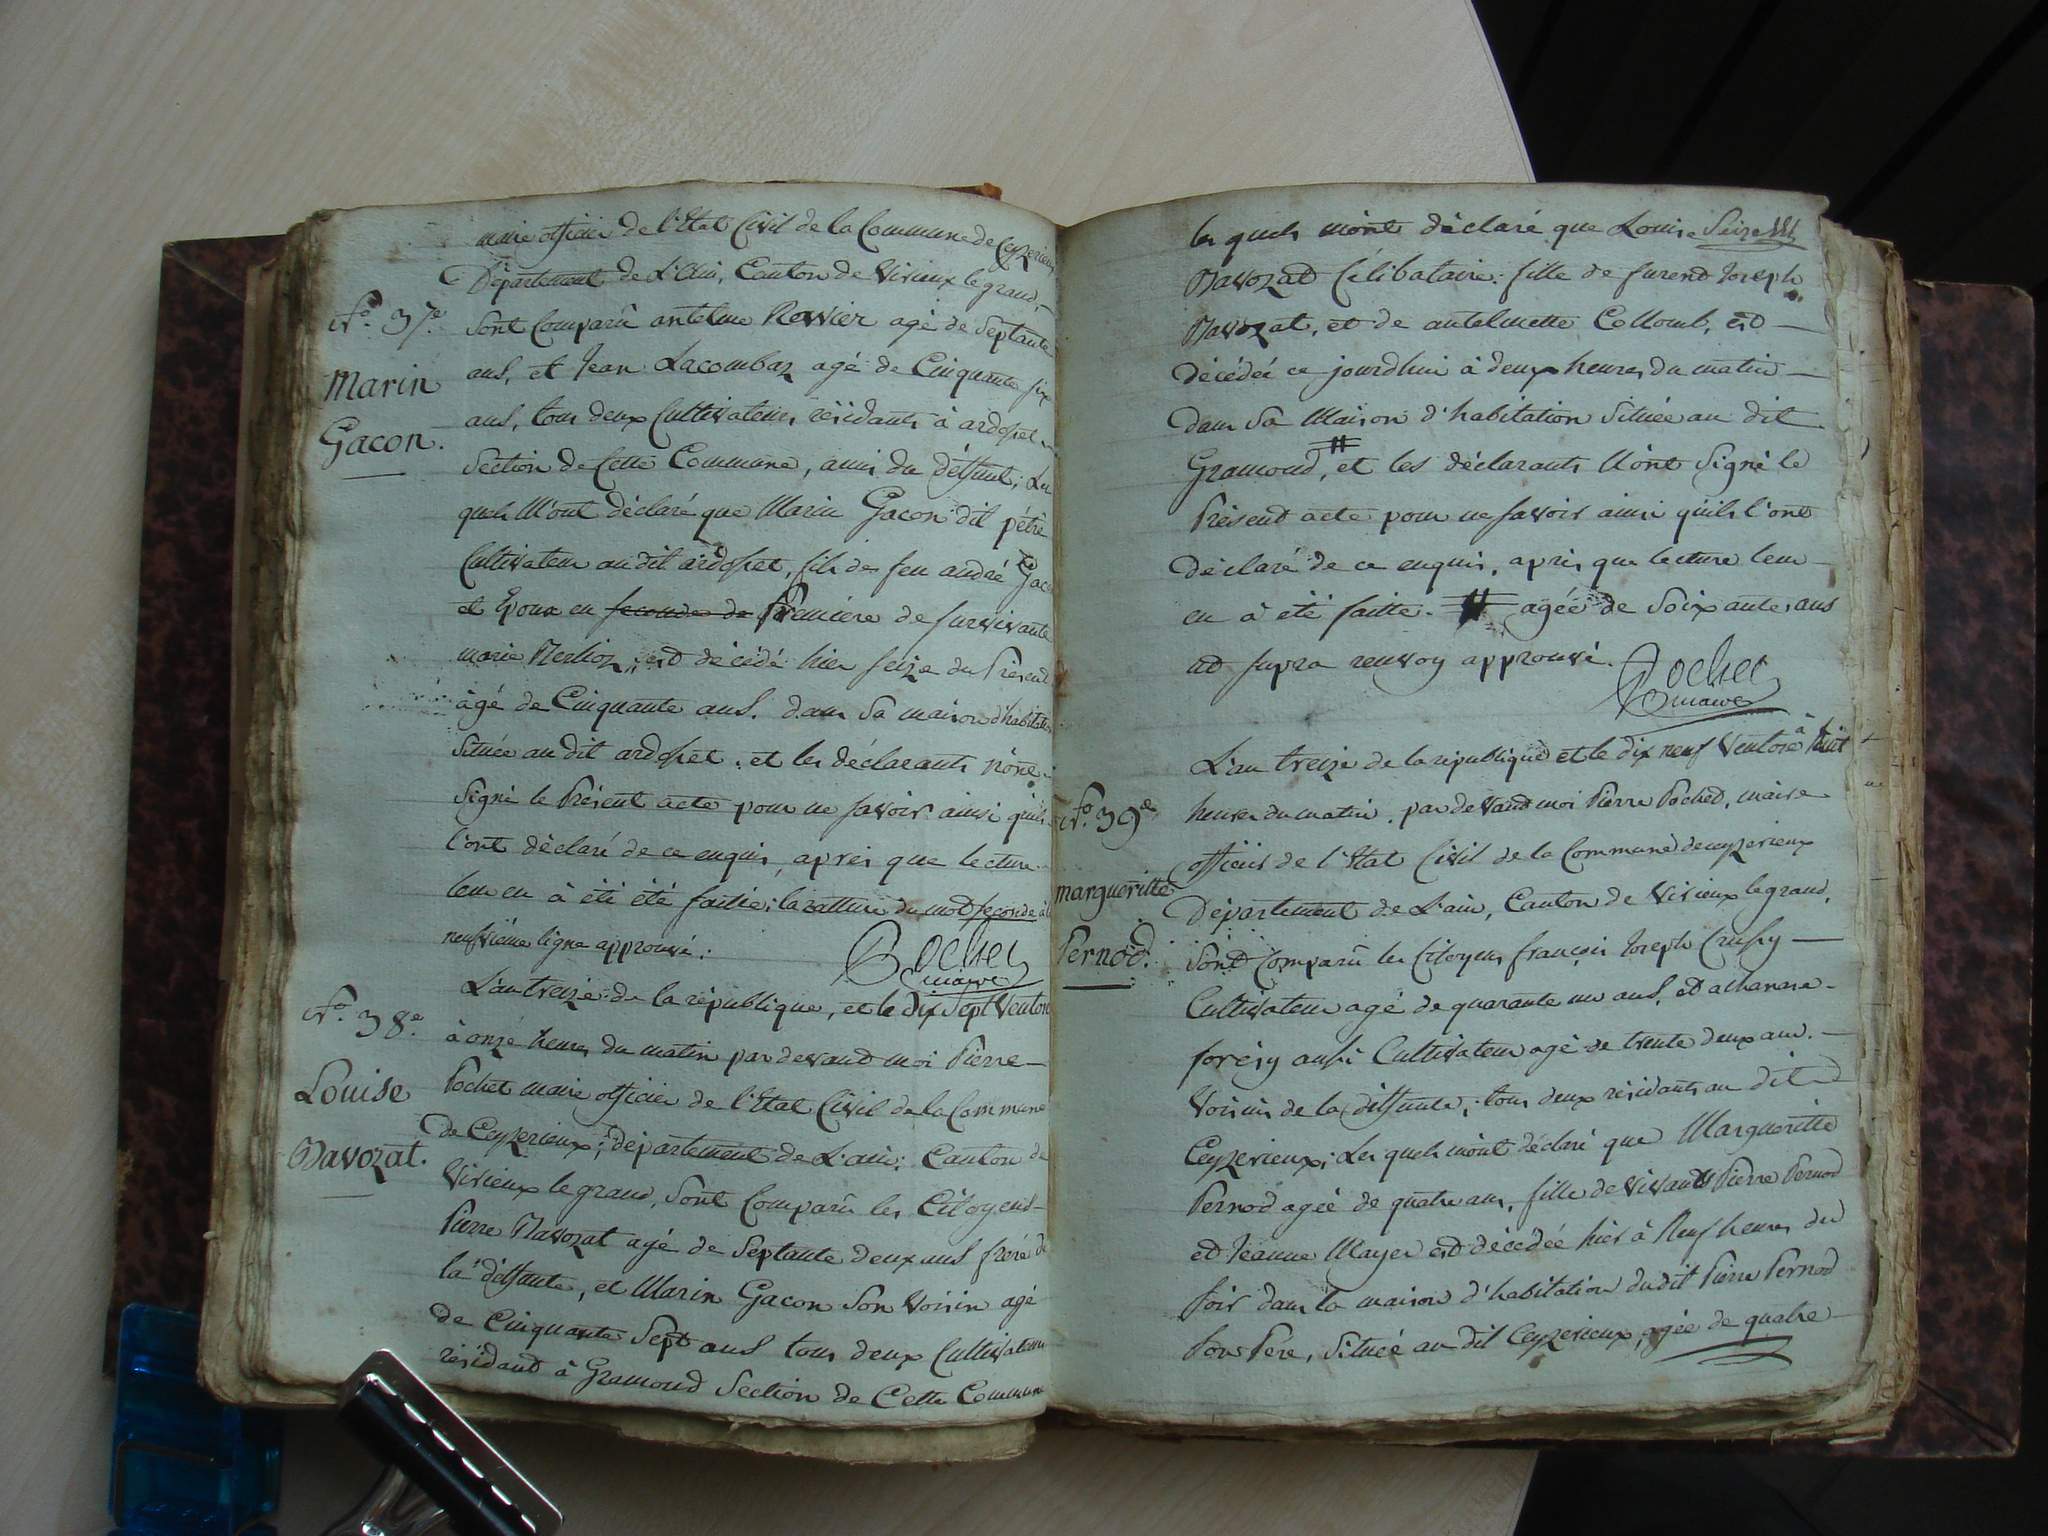 maire officier de l'Etat Civil de la Commune de Ceyzerieux
Département de L'Ain, Canton de Virieux le grand,
No. 37e.
sont Comparû antelme Rovvier agé de Septante
Marin
ans, et Jean Lacombaz agé de Cinquante six
Gacon.
ans, tous deux Cultivateurs résidants à ardosset
Section de Cette Commune, amis du déffunt; Les
quels M'ont déclaré que Marin Gacon dit pétre
Cultivateur au dit ardosset, fils de feu andré Gacon
et Epoux en seconde de Premiere de survivante
marie Berlioz, est décédé hier seize du Présent
àgé de Cinquante ans. dans sa maison d'habitation
située au dit ardosset, et les déclarants n'ont
Signé le Présent acte pour ne savoir ainsi qu'ils
l'ont déclaré de ce enquis, aprés que lecture
leur en à été été faitte; la ratture du mot seconde à la
neufvième ligne approuvé:
Pochet
maire
L'an treize de la république, et le dix Sept Ventose
No. 38e.
à onze heures du matin par devand moi Pierre
Louise
Pochet maire officier de l'Etat Civil de la Commune
Davozat.
de Ceyzerieux, département de L'ain; Canton de
Virieux le grand, sont Comparû les Citoyens
Pierre Davozat agé de Septante deux ans frere de
la déffunte, et Marin Gacon son Voisin agé
de Cinquante Sept ans tous deux Cultivateurs
résidand à Gramond Section de Cette Commune
les quels m'ont déclaré que Louise
Davozat Célibataire: fille de furend Joseph
Davozat, et de antelmette Collomb, est
décédée ce jourd'hui à deux heures du matin
dans sa Maison d'habitation Située au dit
Gramond, et les déclarants N'ont Signé le
Présend acte pour ne savoir ainsi qu'ils l'ont
déclaré de ce enquis, aprés que lecture leur
en à été faitte. agée de Soixante ans
ud supra renvoy approuvé.
Pochet
maire
L'an treize de la république et le dix neuf Ventose à huit
No. 39e
heures du matin. par devand moi Pierre Pochet, maire
officier de l'Etat Civil de la Commune de ceyzerieux
margueritte
Département de L'ain, Canton de Virieux le grand,
Pernod.
Sont Comparû les Citoyens françois Joseph Crussy
Cultivateur agé de quarante un ans, et athanase
forésy aussi Cultivateur agé de trente deux ans.
Voisins de la déffunte; tous deux résidants au dit
Ceyzerieux; Les quels m'ont déclaré que Margueritte
Pernod agée de quatre ans, fille de vivants Pierre Pernod
et Jeanne Mayer est décédée hier à Neuf heures du
soir dans la maison d'habitation du dit Pierre Pernod
son Pére, située au dit Ceyzerieux, agée de quatre